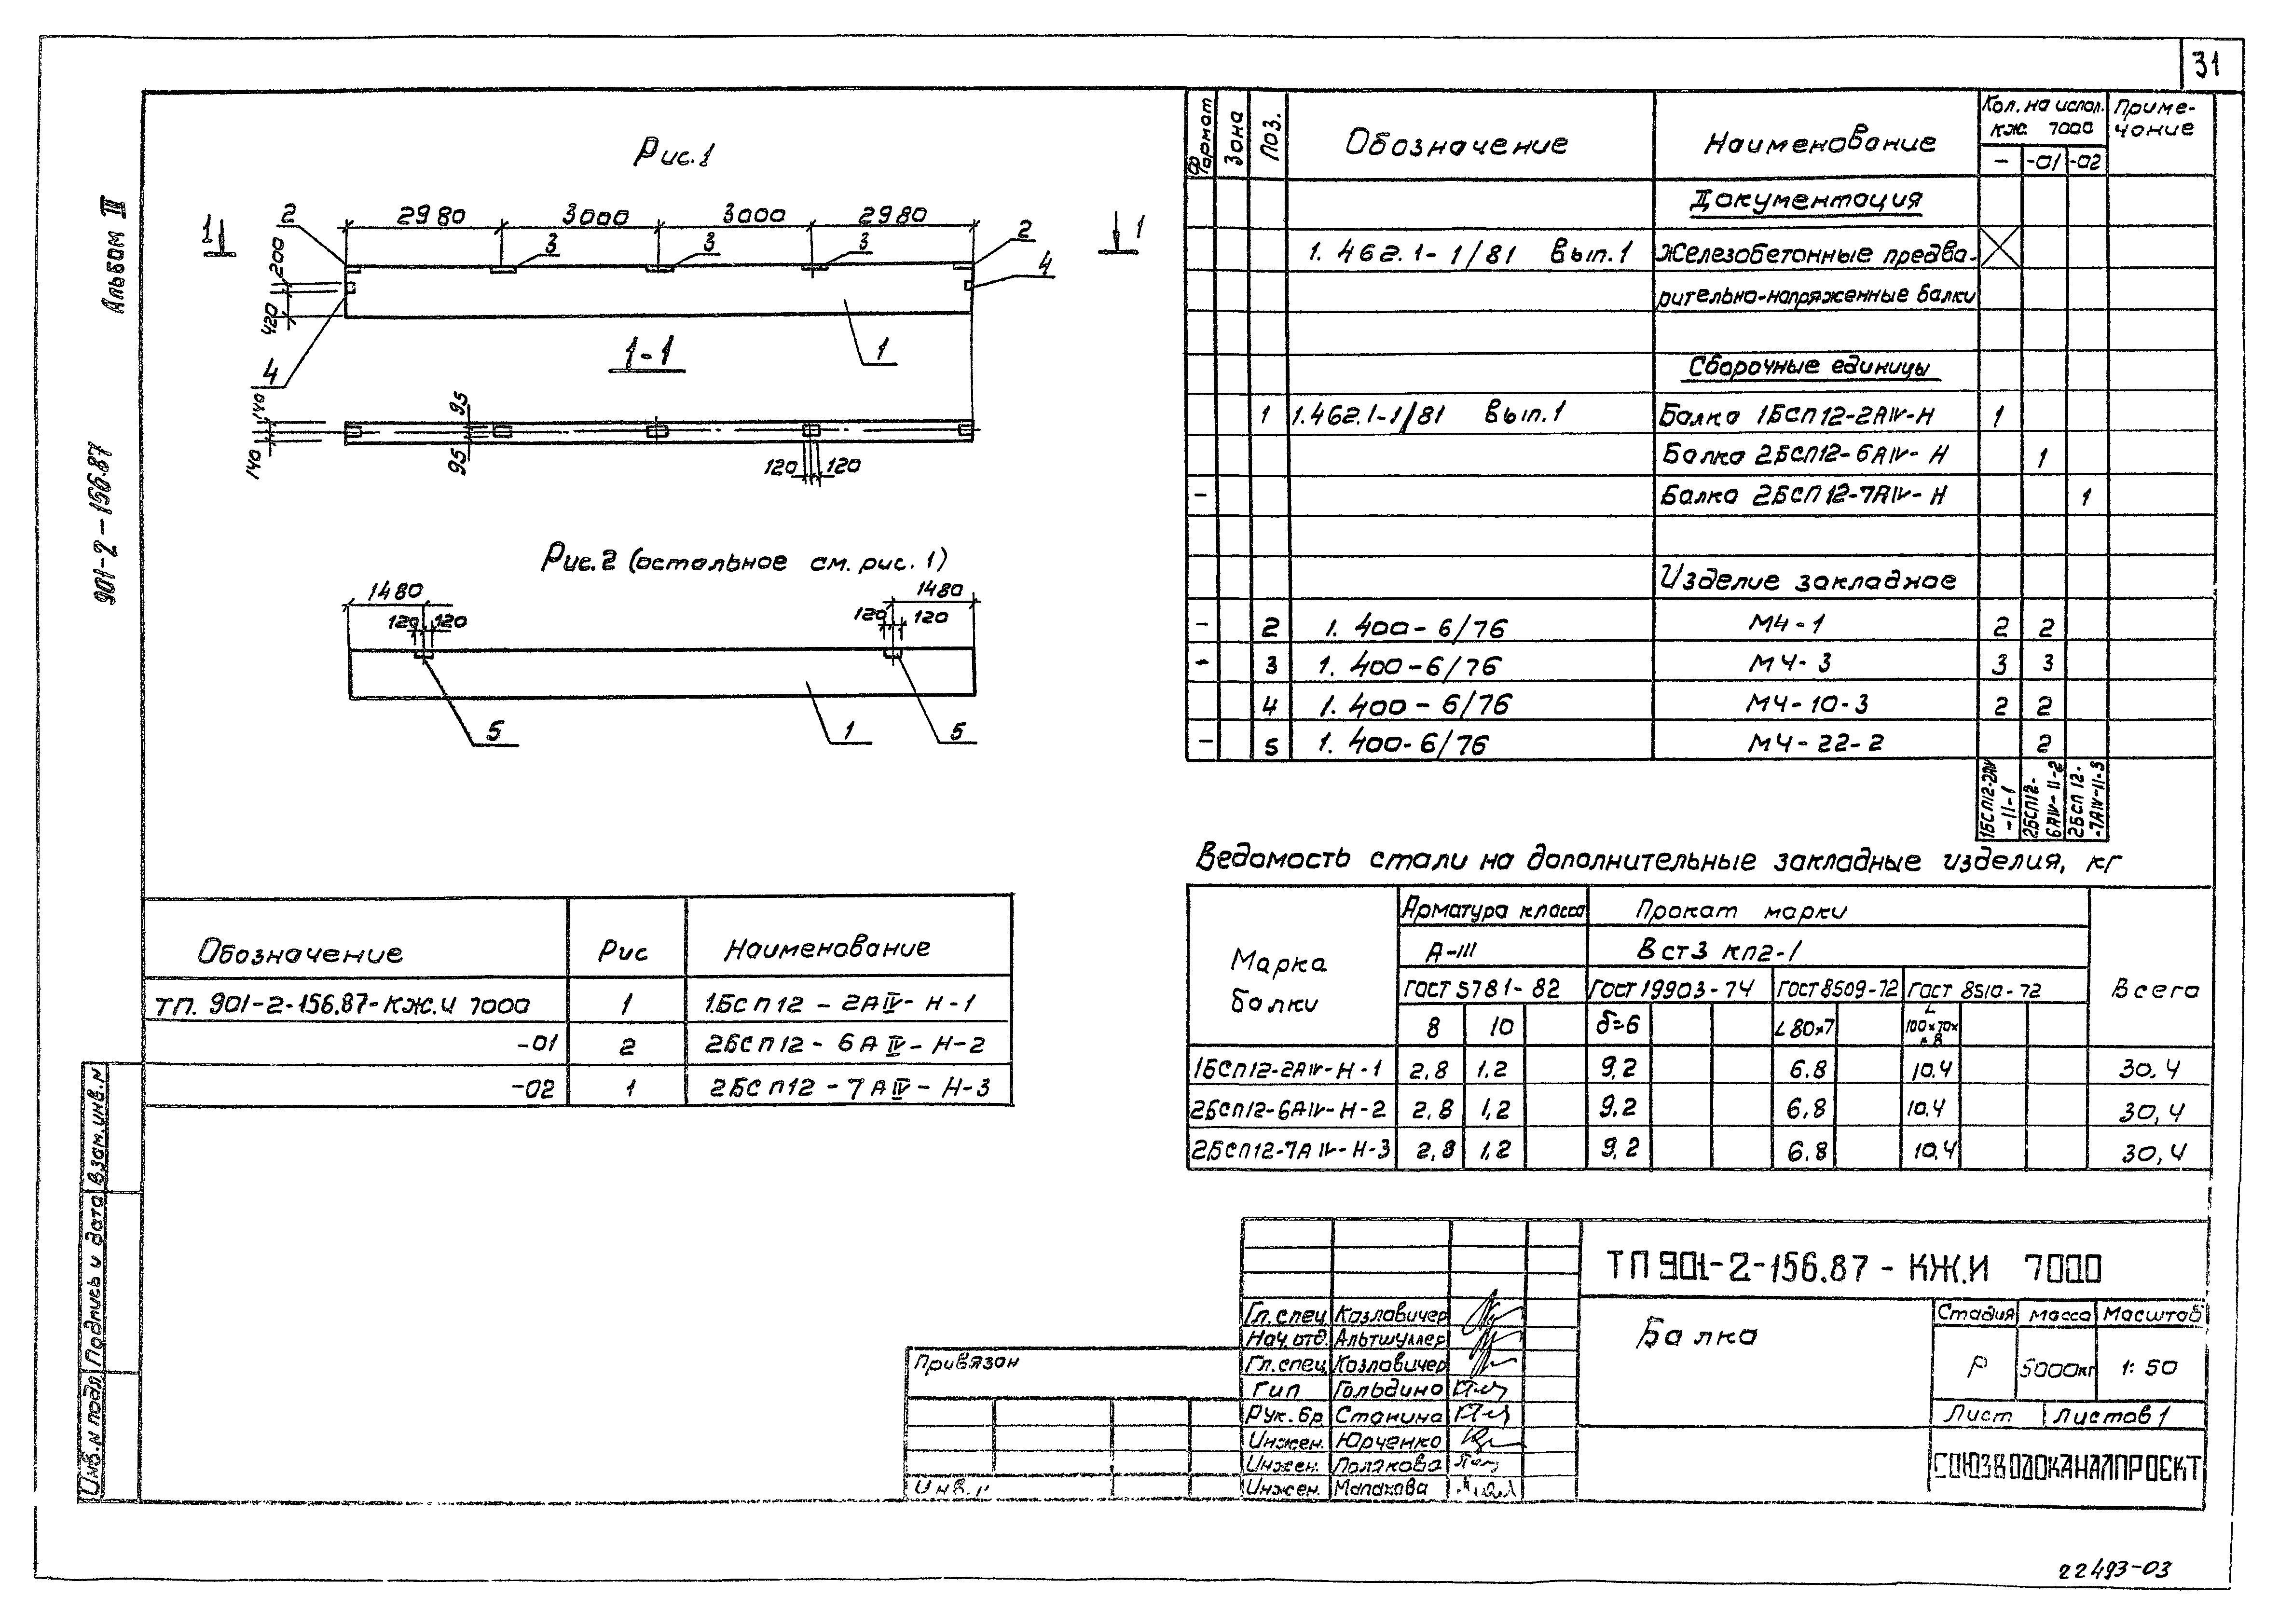 31
Альбом III
901-2-156.87
Рис.1
1
2
2980
3000
3000
2980
2
1
3
3
3
4
200
420
4
1
1-1
140
140
95
95
120
120
Рис.2 (остальное см. рис. 1)
1480
1480
120
120
120
120
5
1
5
Формат
Зона
Поз.
Обозначение
Наименование
Кол. на испол.
КЖ 7000
-
-01
-02
Приме-
чание
Документация
1.462.1-1/81 Вып.1
Железобетонные предва-
рительно-напряженные балки
Сборочные единицы
1
1.462.1-1/81 Вып.1
Балка 1БСП12-2АIV-Н
1
Балка 2БСП12-6АIV-Н
1
-
Балка 2БСП12-7АIV-Н
1
Изделие закладное
-
2
1.400-6/76
М4-1
2
2
-
3
1.400-6/76
МЧ-3
3
3
4
1.400-6/76
МЧ-10-3
2
2
-
5
1.400-6/76
МЧ-22-2
2
1БСП12-2АIV
-II-1
2БСП12-
6АIV-II-2
2БСП12-
-7АIV-II-3
Ведомость стали на дополнительные закладные изделия, кг
Марка
балки
Арматура класса
А-III
ГОСТ 5781-82
8
10
Прокат марки
Вст3 кп2-1
ГОСТ 19903-74
δ=6
ГОСТ 8509-72
∠80×7
ГОСТ 8510-72
∠
100×70×
×8
Всего
1БСП12-2АIV-Н-1
2,8
1,2
9,2
6.8
10.4
30,4
2БСП12-6АIV-Н-2
2,8
1,2
9.2
6,8
10.4
30,4
2БСП12-7АIV-Н-3
2,8
1,2
9,2
6.8
10,4
30,4
Обозначение
Рис
Наименование
ТП. 901-2-156.87-КЖ.И 7000
1
1БСП12-2АIV-Н-1
-01
2
2БСП12-6АIV-Н-2
-02
1
2БСП12-7АIV-Н-3
Взам.инв.N
Подпись и дата
Инв.N подл.
Привязан
Инв.N
Гл.спец. Козловичер
Нач.отд. Альтшуллер
Гл.спец. Козловичер
ГИП Гольдино
Рук.бр Станина
Инжен. Юрченко
Инжен. Полякова
Инжен. Малахова
ТП 901-2-156.87-КЖ.И 7000
Балка
Стадия
Масса
Масштаб
Р
5000кг
1:50
Лист
Листов 1
СОЮЗВОДОКАНАЛПРОЕКТ
22493-03